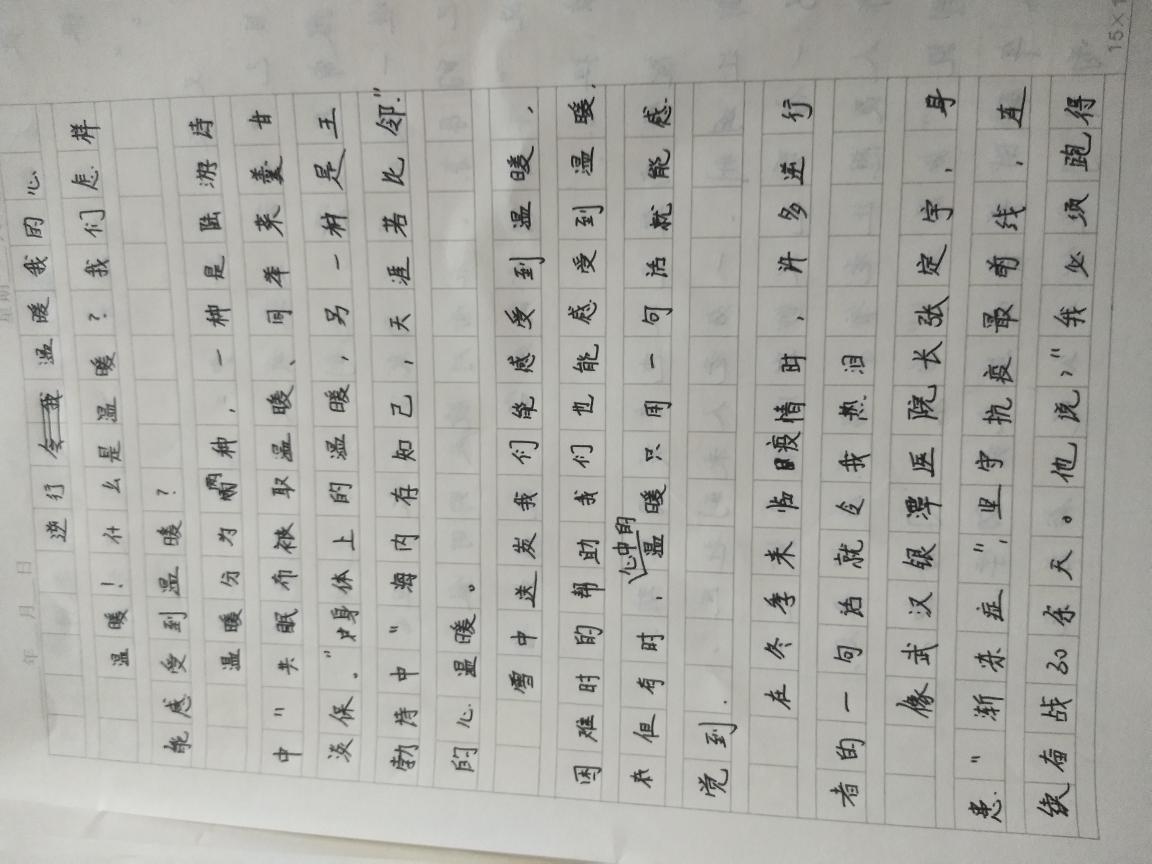 逆行 温暖我的心
温暖！什么是温暖？我们怎样
能感受到温暖？
温暖分为两种，一种是陆游诗
中“共眠布被取温暖、同举菜羹甘
淡保。”身体上的温暖，另一种是王
勃诗中“海内存知己，天涯若比邻.”
的心温暖。
雪中送炭我们能感受到温暖，
困难时的帮助我们也能感受到温暖,
但有时，心中的温暖只用一句话就能感
觉到.
在冬季来临疫情时，许多逆行
者的一句话就令我热泪
像武汉银潭医院长张定宇，身
患“渐冻症”，坚守抗疫最前线，连
续奋战30余天。他说：“我必须跑得
年 月 日
星期
15×1